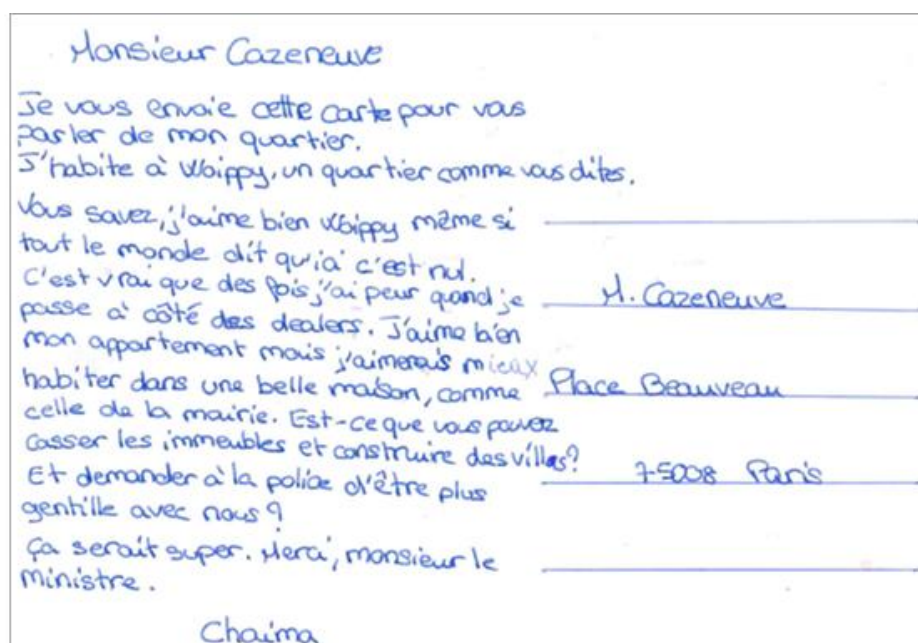 Monsieur Cazeneuve
Je vous envoie cette carte pour vous
parler de mon quartier.
J'habite à Woippy, un quartier comme vous dites.
Vous savez, j'aime bien Woippy même si
tout le monde dit qu'ici c'est nul.
C'est vrai que des fois, j'ai peur quand je
passe à côté des dealers. J'aime bien
mon appartement mais j'aimerais mieux
habiter dans une belle maison, comme
celle de la mairie. Est-ce que vous pouvez
casser les immeubles et construire des villas?
Et demander à la police d'être plus
gentille avec nous?
Ça serait super. Merci, monsieur le
ministre.
Chaima
M. Cazeneuve
Place Beauveau
75008 Paris